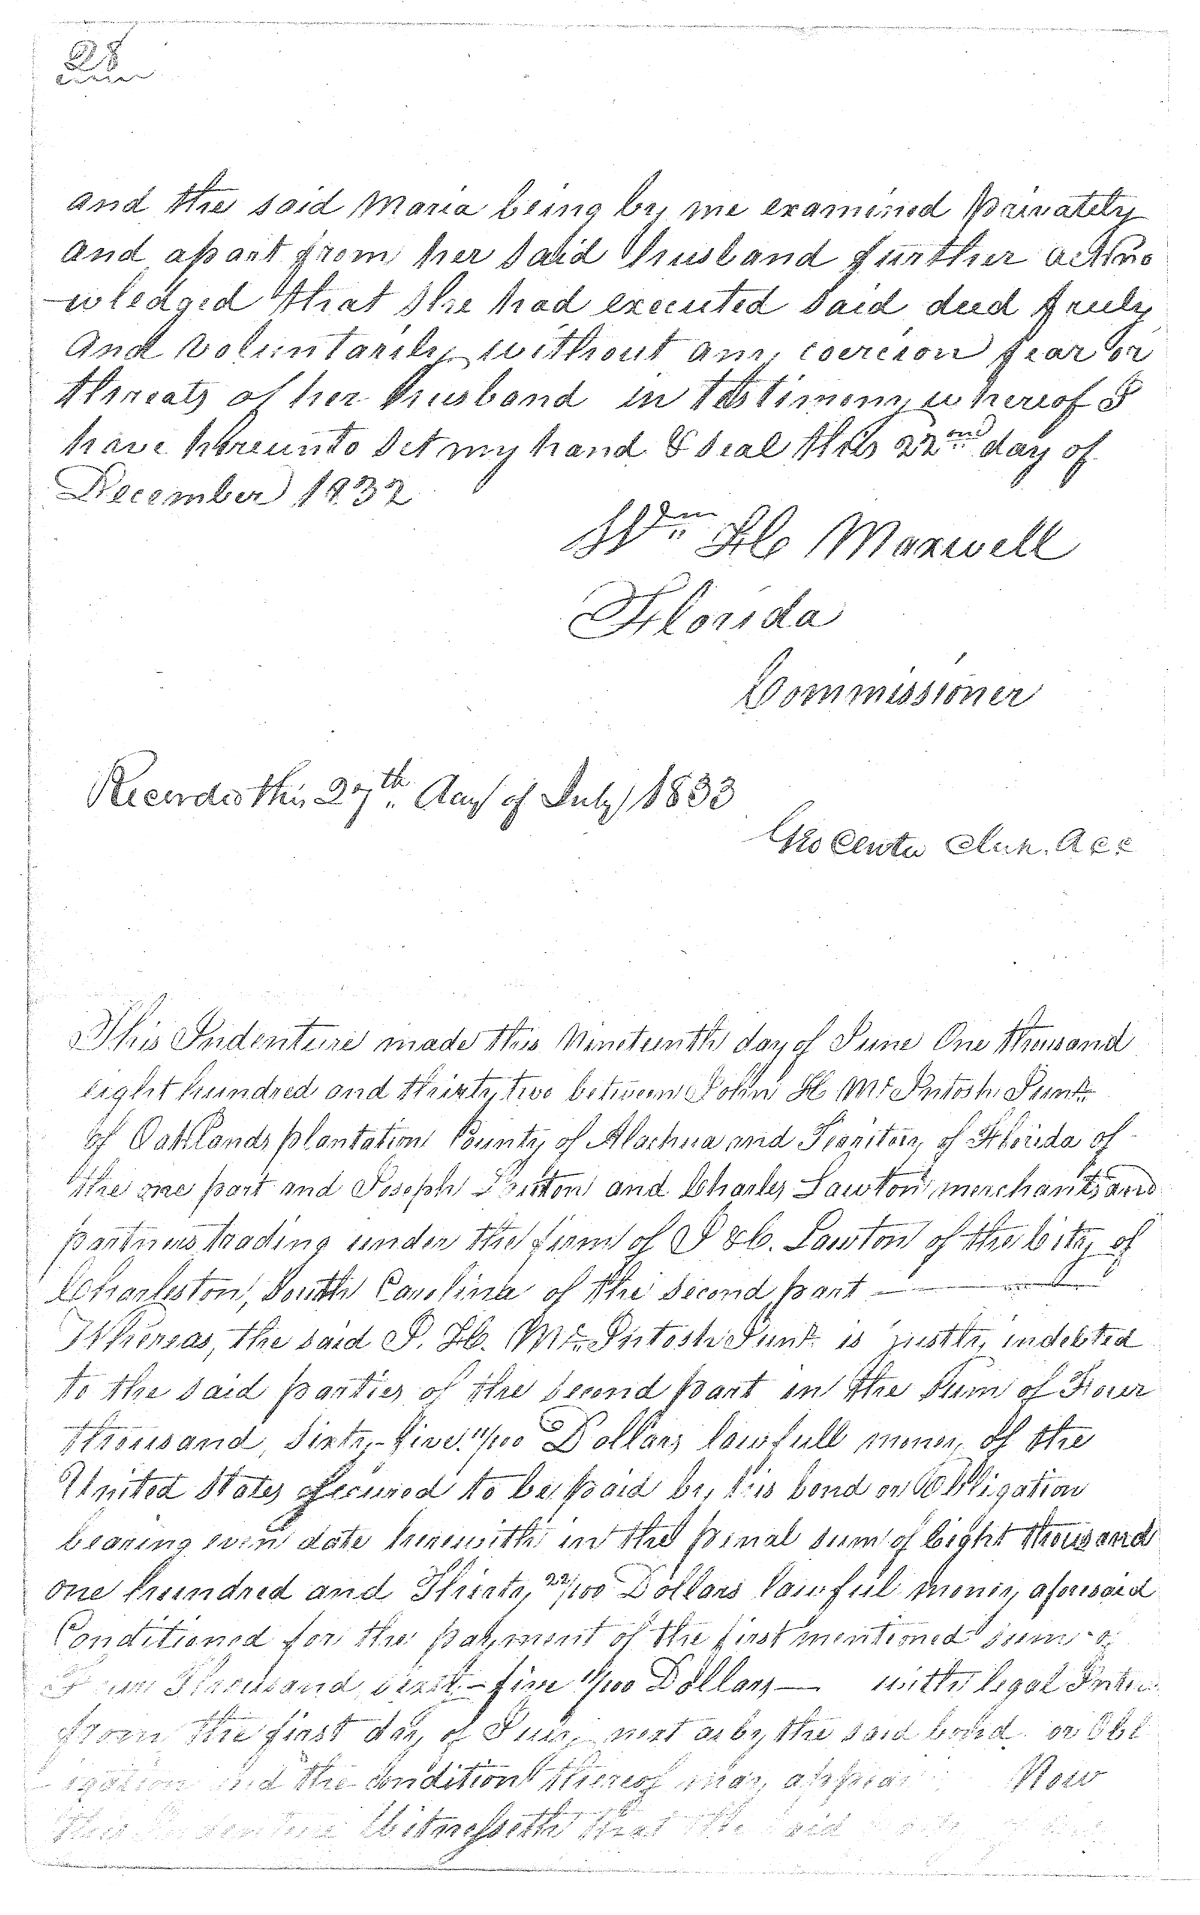 28
and the said Maria being by me examined privately
and apart from her said husband further ackno
-wledged that she had executed said deed freely
and voluntarily without any coercion fear or
threats of her husband in testimony whereof I
have hereunto set my hand & seal this 22nd day of
December 1832
Wm H Maxwell
Florida
Commissioner
Recorded this 27th day of July 1833
Geo Center Clerk. A C C
This Indenture made this Nineteenth day of June One thousand
eight hundred and thirty two between John H McIntosh Junr
of Oaklands plantation County of Alachua and Territory of Florida of
the one part and Joseph Lawton and Charles Lawton merchants and
partners trading under the firm of J & C. Lawton of the City of
Charleston, South Carolina of the second part
Whereas, the said J. H. McIntosh Junr is justly indebted
to the said parties of the second part in the Sum of Four
thousand, sixty-five 11/100 Dollars lawfull money of the
United States secured to be paid by his bond or Obligation
bearing even date herewith in the penal sum of Eight thousand
one hundred and Thirty 22/100 Dollars lawful money aforesaid
Conditioned for the payment of the first mentioned sum of
Four Thousand sixty-five 11/100 Dollars — with legal
from the first day of July next as by the said bond or Obl
-igation and the condition thereof may appear Now
this Indenture Witnesseth that the said